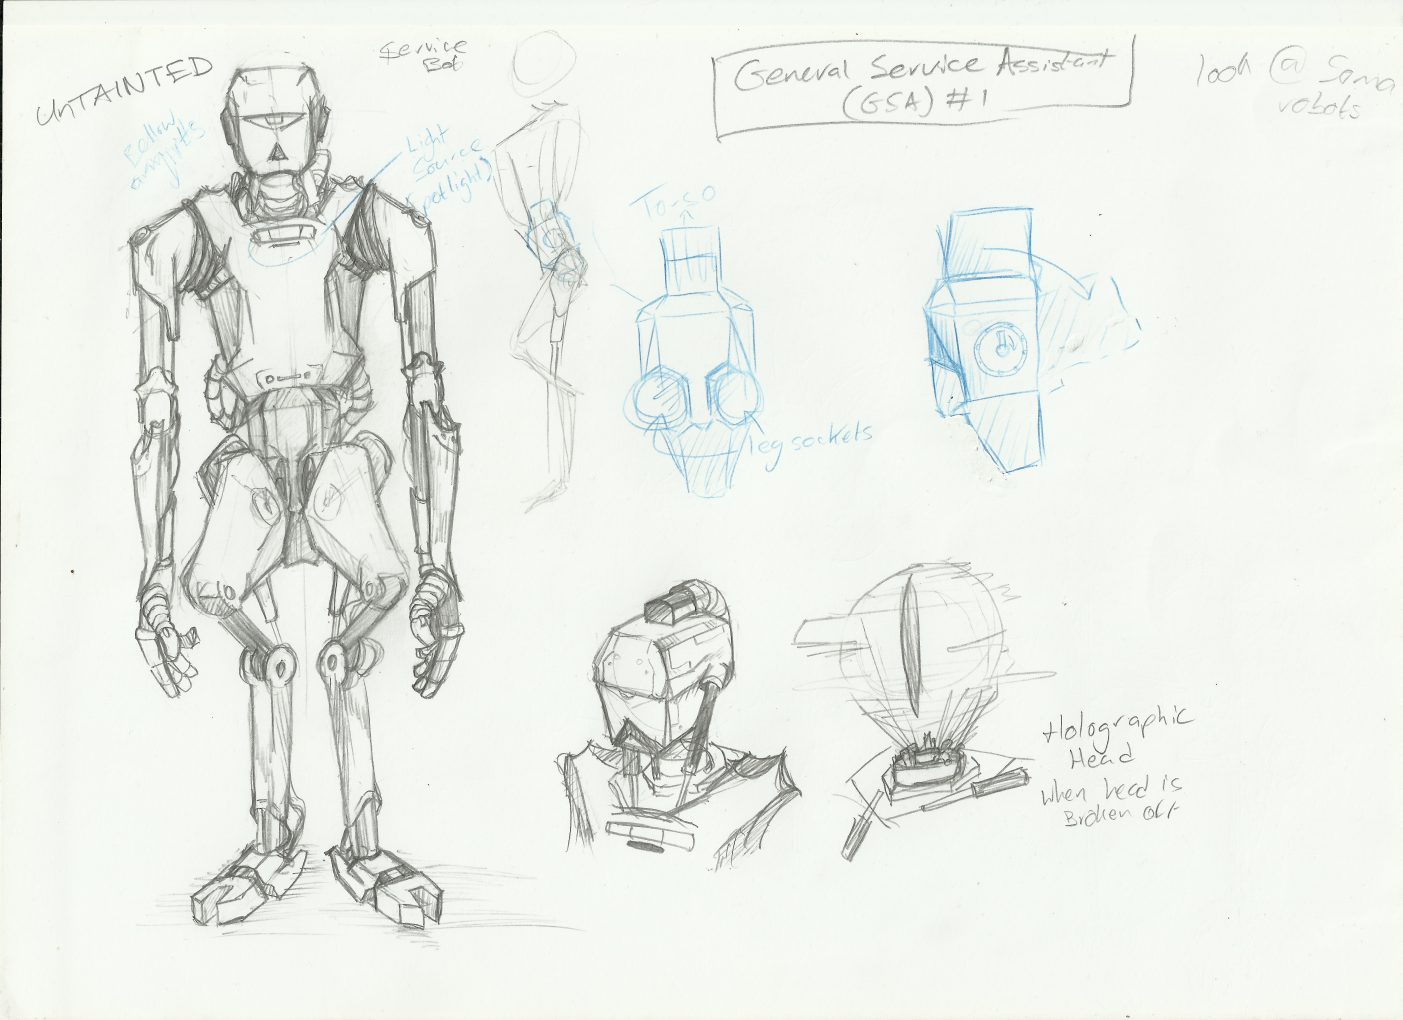 UNTAINTED
Service
Bot
General Service Assistant
(GSA) #1
look @ Soma
robots
Bellow
armpits
Light
Source
(Spotlight)
Torso
leg sockets
Holographic
Head
when head is
Broken off